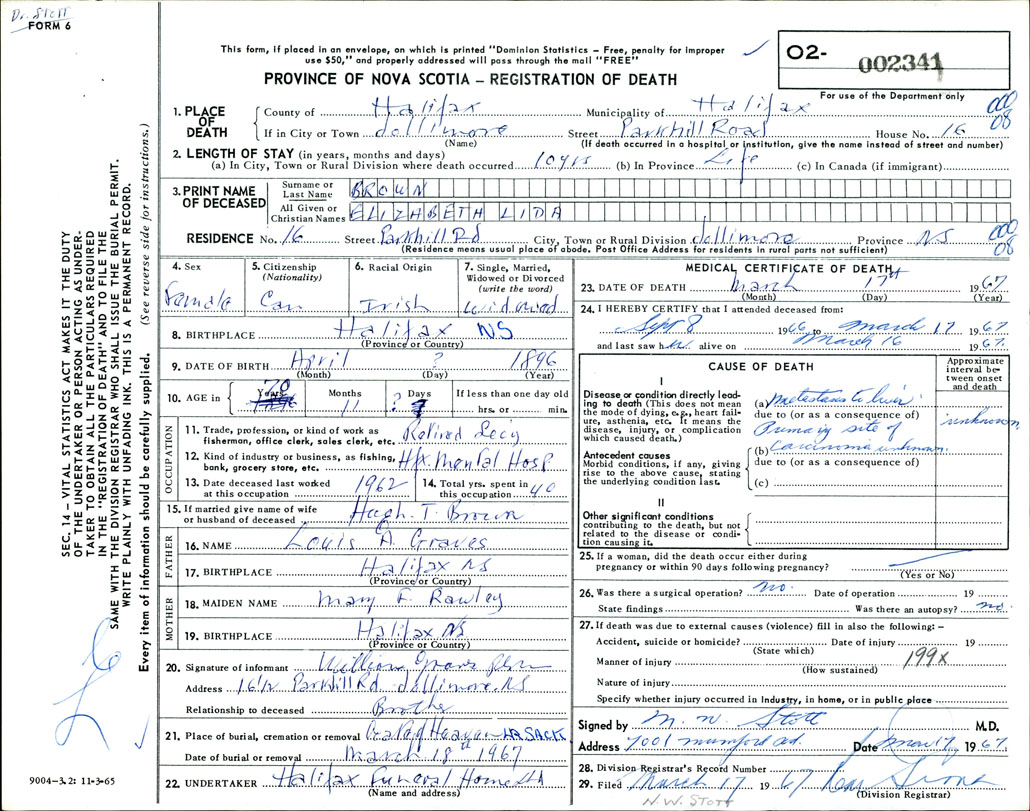 Dr. Stott
FORM 6
This form, if placed in an envelope, on which is printed "Dominion Statistics – Free, penalty for improper
use $50," and properly addressed will pass through the mail "FREE"
PROVINCE OF NOVA SCOTIA – REGISTRATION OF DEATH
O2- 002341
For use of the Department only
1. PLACE OF DEATH County of Halifax Municipality of Halifax 000 08
If in City or Town Jollimore Street Parkhill Road House No. 16
(Name) (If death occurred in a hospital or institution, give the name instead of street and number)
2. LENGTH OF STAY (in years, months and days)
(a) In City, Town or Rural Division where death occurred 10 yrs (b) In Province Life (c) In Canada (if immigrant)
3. PRINT NAME OF DECEASED
Surname or Last Name BROWN
All Given or Christian Names ELIZABETH LIDA
RESIDENCE No. 16 Street Parkhill Rd City, Town or Rural Division Jollimore Province NS 000 08
(Residence means usual place of abode. Post Office Address for residents in rural parts not sufficient)
4. Sex Female
5. Citizenship (Nationality) Can
6. Racial Origin Irish
7. Single, Married, Widowed or Divorced (write the word) Widowed
8. BIRTHPLACE Halifax NS
(Province or Country)
9. DATE OF BIRTH April ? 1896
(Month) (Day) (Year)
10. AGE in Years 70 Months 11 Days ? If less than one day old
hrs. or min.
OCCUPATION
11. Trade, profession, or kind of work as
fisherman, office clerk, sales clerk, etc. Retired Sec'y
12. Kind of industry or business, as fishing,
bank, grocery store, etc. Hfx Mental Hosp
13. Date deceased last worked
at this occupation 1962
14. Total yrs. spent in
this occupation 40
15. If married give name of wife
or husband of deceased Hugh T. Brown
FATHER
16. NAME Louis A. Graves
17. BIRTHPLACE Halifax NS
(Province or Country)
MOTHER
18. MAIDEN NAME Mary F. Rawley
19. BIRTHPLACE Halifax NS
(Province or Country)
20. Signature of informant William
Address 16 1/2 Parkhill Rd Jollimore, NS
Relationship to deceased Brother
21. Place of burial, cremation or removal LR SACK
Date of burial or removal March 18th 1967
22. UNDERTAKER Halifax Funeral Home Ltd
(Name and address)
MEDICAL CERTIFICATE OF DEATH
23. DATE OF DEATH March 17th 1967
(Month) (Day) (Year)
24. I HEREBY CERTIFY that I attended deceased from:
Sept 8 1966 to March 17 1967
and last saw her alive on March 16 1967.
CAUSE OF DEATH
Approximate interval between onset and death
I
Disease or condition directly leading to death (This does not mean the mode of dying, e.g., heart failure, asthenia, etc. It means the disease, injury, or complication which caused death.)
(a) Metastases to liver unknown
due to (or as a consequence of)
Primary site of
(b) Carcinoma unknown.
due to (or as a consequence of)
(c)
Antecedent causes
Morbid conditions, if any, giving rise to the above cause, stating the underlying condition last.
II
Other significant conditions
contributing to the death, but not related to the disease or condition causing it.
25. If a woman, did the death occur either during
pregnancy or within 90 days following pregnancy?
(Yes or No)
26. Was there a surgical operation? no. Date of operation 19
State findings Was there an autopsy? no.
27. If death was due to external causes (violence) fill in also the following: –
Accident, suicide or homicide? Date of injury 19
(State which)
Manner of injury 199X
(How sustained)
Nature of injury
Specify whether injury occurred in Industry, in home, or in public place
Signed by M. W. Stott M.D.
Address 7001 Mumford Rd. Date Mar 17, 1967.
28. Division Registrar's Record Number
29. Filed March 17 1967
(Division Registrar)
N.W. STOTT
SEC. 14 – VITAL STATISTICS ACT MAKES IT THE DUTY
OF THE UNDERTAKER OR PERSON ACTING AS UNDER-
TAKER TO OBTAIN ALL THE PARTICULARS REQUIRED
IN THE "REGISTRATION OF DEATH" AND TO FILE THE
SAME WITH THE DIVISION REGISTRAR WHO SHALL ISSUE THE BURIAL PERMIT.
WRITE PLAINLY WITH UNFADING INK. THIS IS A PERMANENT RECORD.
Every item of information should be carefully supplied. (See reverse side for instructions.)
9004-3.2: 11-3-65